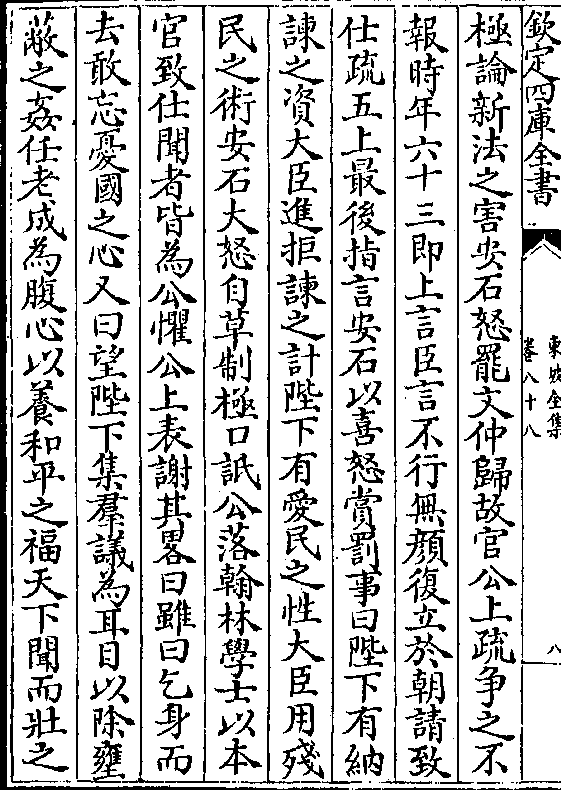 欽定四庫全書
東坡全集
卷八十八
八
極論新法之害安石怒罷文仲歸故官公上疏爭之不
報時年六十三即上言臣言不行無顔復立於朝請致
仕疏五上最後指言安石以喜怒賞罰事曰陛下有納
諫之資大臣進拒諫之計陛下有愛民之性大臣用殘
民之術安石大怒自草制極口詆公落翰林學士以本
官致仕聞者皆為公懼公上表謝其畧曰雖曰乞身而
去敢忘憂國之心又曰望陛下集羣議為耳目以除壅
蔽之姦任老成為腹心以養和平之福天下聞而壯之